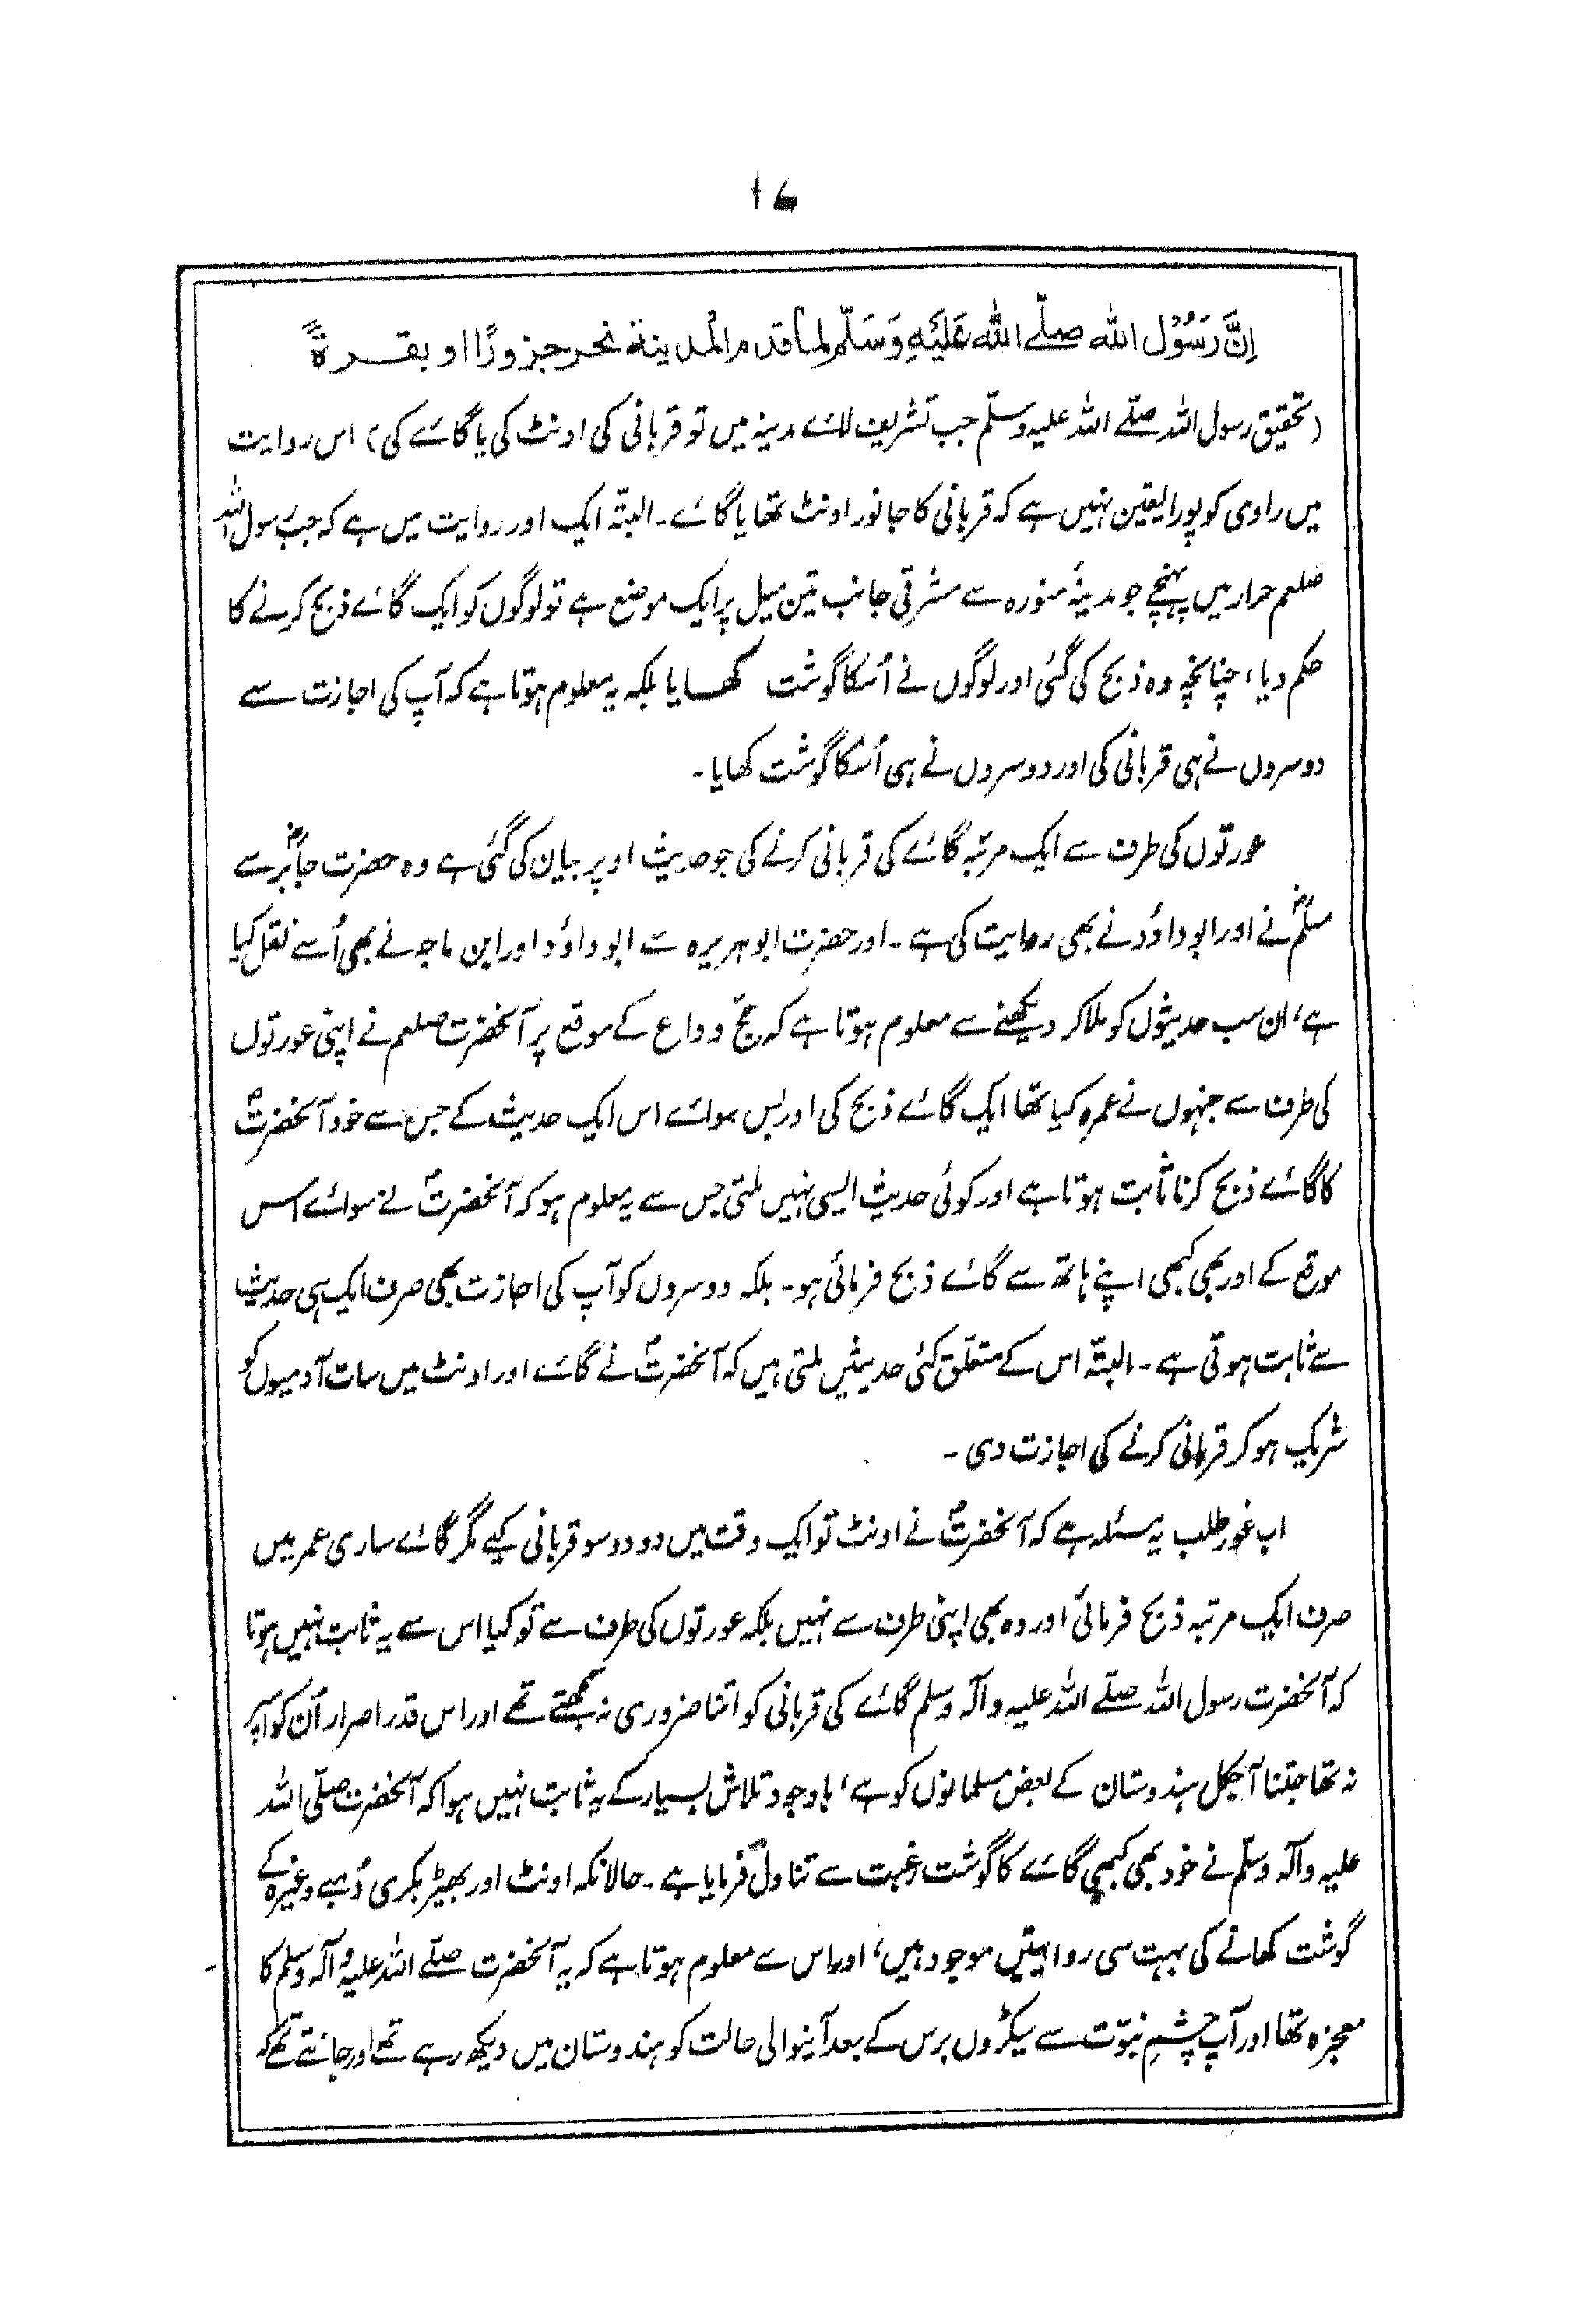 ۱۷
اِنَّ رَسُوْل اللّٰه صلّے اللّٰه عَلَيْهِ وَسَلّم لما قدم المدينة نحر جزورًا او بقرةً
(تحقیق رسول اللہ صلّے اللہ علیہ وسلّم جب تشریف لائے مدینہ میں تو قربانی کی اونٹ کی یا گائے کی) اس روایت
میں راوی کو پورا یقین نہیں ہے کہ قربانی کا جانور اونٹ تھا یا گائے۔ البتّہ ایک اور روایت میں ہے کہ جب رسول اللہ
صلعم حرار میں پہنچے جو مدینۂ منورہ سے مشرقی جانب تین میل پر ایک موضع ہے تو لوگوں کو ایک گائے ذبح کرنے کا
حکم دیا، چنانچہ وہ ذبح کی گئی اور لوگوں نے اُسکا گوشت کھایا بلکہ یہ معلوم ہوتا ہے کہ آپ کی اجازت سے
دوسروں نے ہی قربانی کی اور دوسروں نے ہی اُسکا گوشت کھایا۔
عورتوں کی طرف سے ایک مرتبہ گائے کی قربانی کرنے کی جو حدیث اوپر بیان کی گئی ہے وہ حضرت جابرؓ سے
مسلمؒ نے اور ابو داؤد نے بھی روایت کی ہے۔ اور حضرت ابو ہریرہ سے ابو داؤد اور ابن ماجہ نے بھی اُسے نقل کیا
ہے، ان سب حدیثوں کو ملا کر دیکھنے سے معلوم ہوتا ہے کہ حجّ وداع کے موقع پر آنحضرت صلعم نے اپنی عورتوں
کی طرف سے جنہوں نے عمرہ کیا تھا ایک گائے ذبح کی اور بس سوائے اس ایک حدیث کے جس سے خود آنحضرتؐ
کا گائے ذبح کرنا ثابت ہوتا ہے اور کوئی حدیث ایسی نہیں ملتی جس سے یہ معلوم ہو کہ آنحضرتؐ نے سوائے اس
موقع کے اور بھی کبھی اپنے ہاتھ سے گائے ذبح فرمائی ہو۔ بلکہ دوسروں کو آپ کی اجازت بھی صرف ایک ہی حدیث
سے ثابت ہوتی ہے۔ البتّہ اس کے متعلّق کئی حدیثیں ملتی ہیں کہ آنحضرتؐ نے گائے اور اونٹ میں سات آدمیوں کو
شریک ہو کر قربانی کرنے کی اجازت دی۔
اب غور طلب یہ مسئلہ ہے کہ آنحضرتؐ نے اونٹ تو ایک وقت میں دو دو سو قربانی کیے مگر گائے ساری عمر میں
صرف ایک مرتبہ ذبح فرمائی اور وہ بھی اپنی طرف سے نہیں بلکہ عورتوں کی طرف سے تو کیا اس سے یہ ثابت نہیں ہوتا
کہ آنحضرت رسول اللہ صلّے اللہ علیہ وآلہ وسلم گائے کی قربانی کو اتنا ضروری نہ سمجھتے تھے اور اس قدر اصرار اُن کو اسپر
نہ تھا جتنا آجکل ہندوستان کے بعض مسلمانوں کو ہے، باوجود تلاش بسیار کے یہ ثابت نہیں ہوا کہ آنحضرت صلّی اللہ
علیہ وآلہ وسلّم نے خود بھی کبھی گائے کا گوشت رغبت سے تناول فرمایا ہے۔ حالانکہ اونٹ اور بھیڑ بکری دُنبے وغیرہ کے
گوشت کھانے کی بہت سی روایتیں موجود ہیں، اور اس سے معلوم ہوتا ہے کہ یہ آنحضرت صلّے اللہ علیہ وآلہ وسلم کا
معجزہ تھا اور آپ چشمِ نبوّت سے سیکڑوں برس کے بعد آنیوالی حالت کو ہندوستان میں دیکھ رہے تھے اور جانتے تھے کہ